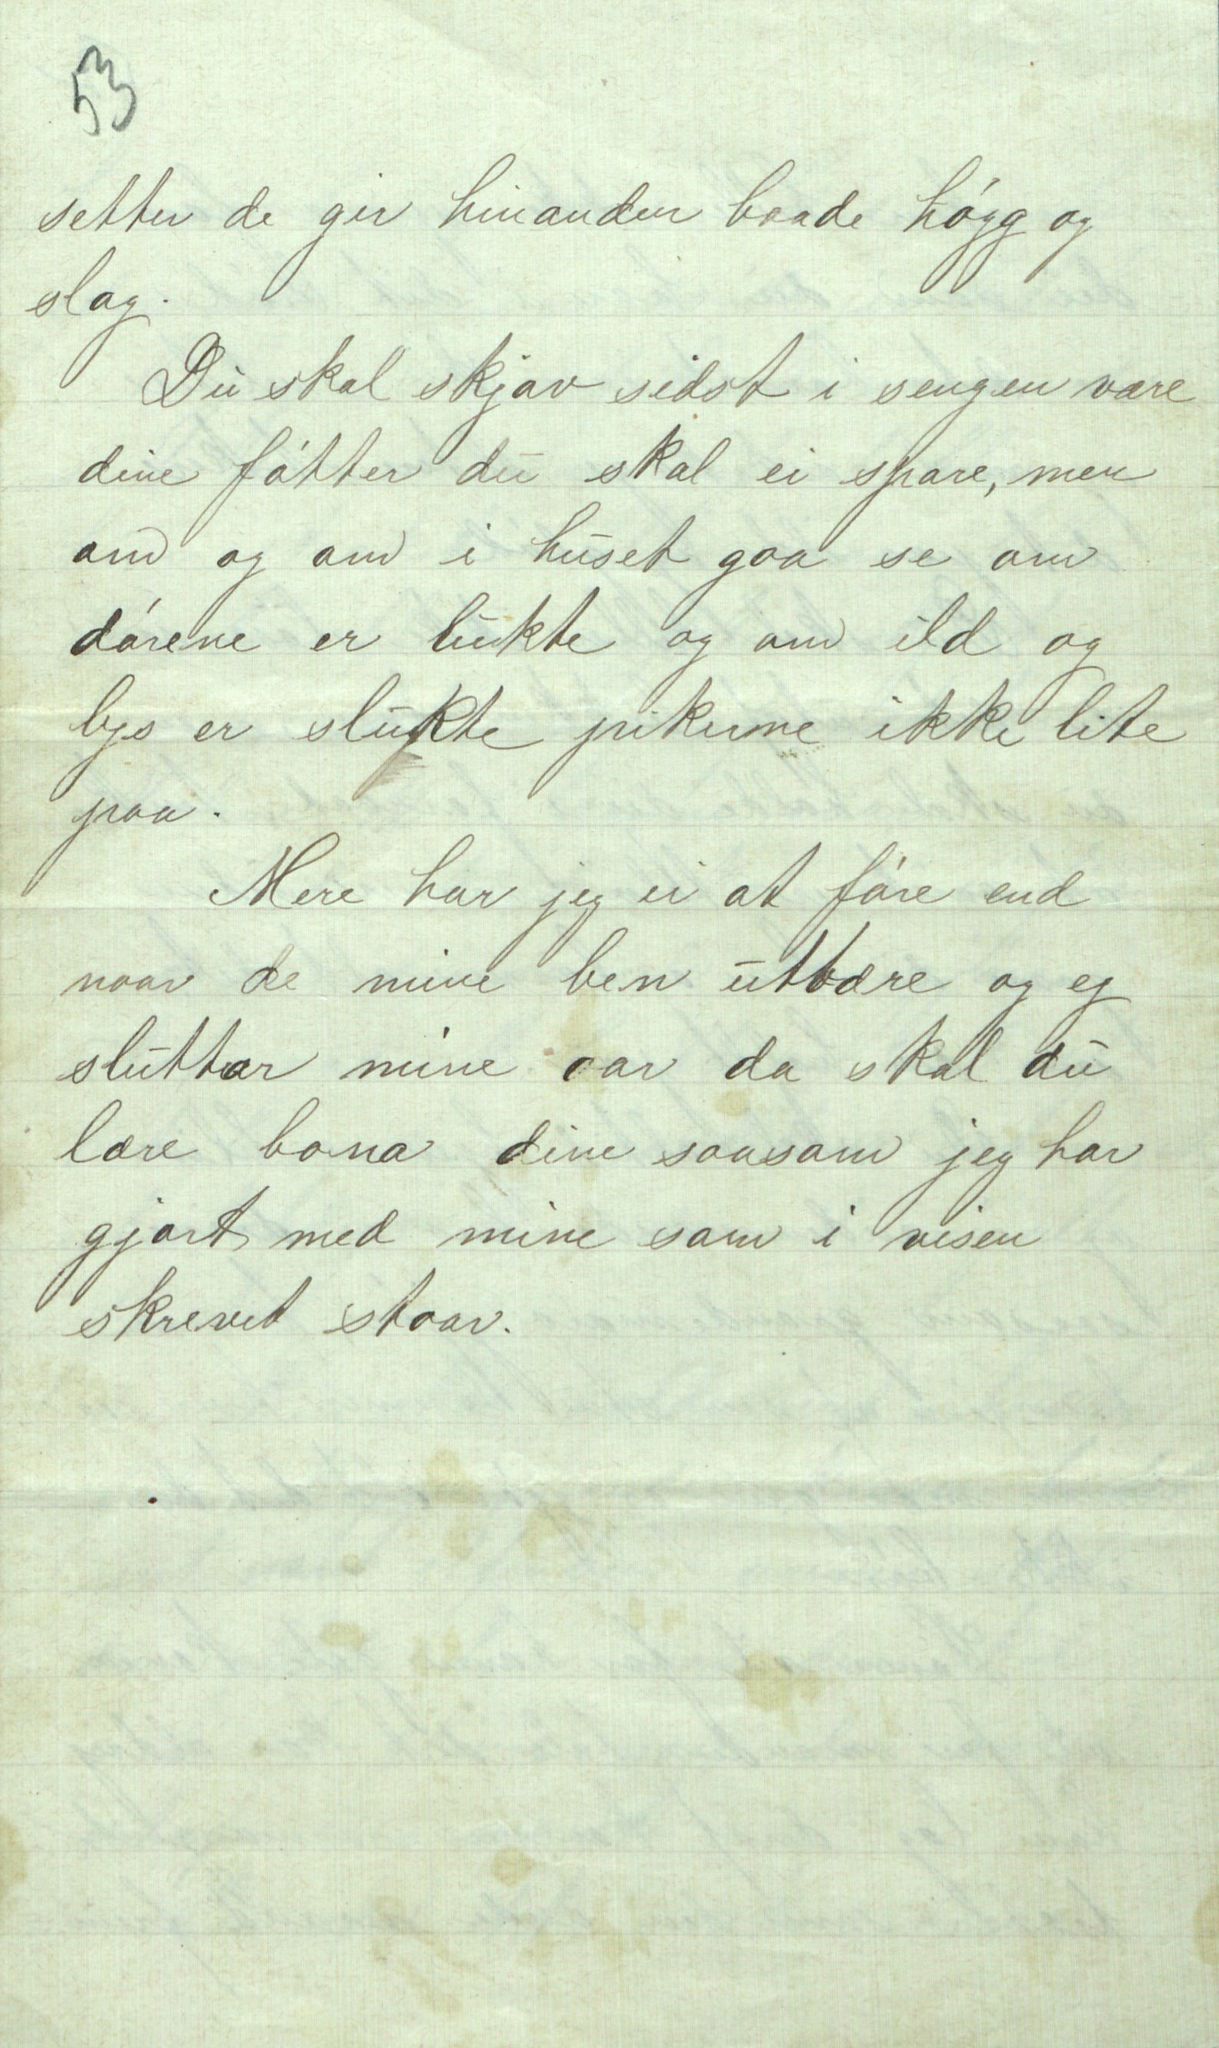 53
setter de gir hinanden baade høgg og
slag.
Du skal skjøv sidst i sengen være
dine føtter du skal ei spare, men
om og om i huset gaa se om
dørene er lukte og om ild og
lys er slukte pikerne ikke lite
paa.
Mere har jeg ei at føre end
naar de mine ben utbære og eg
sluttar mine aar da skal du
lære bona dine saasom jeg har
gjort med mine som i visen
skrevet staar.